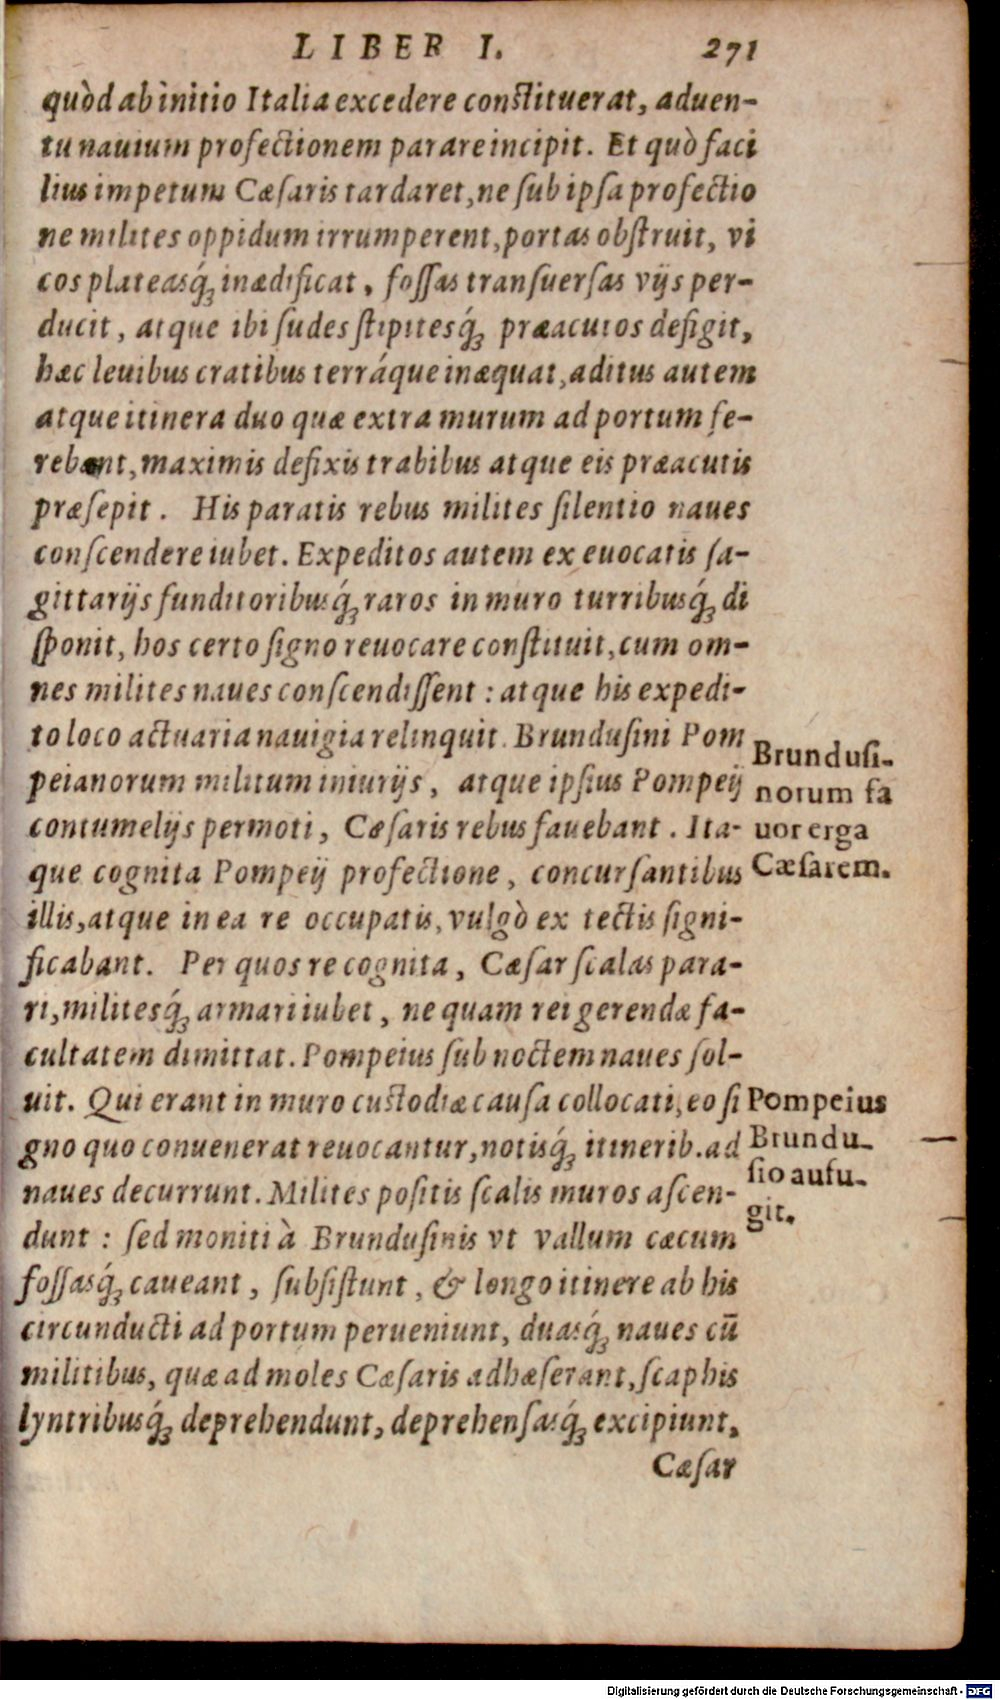 LIBER I. 271
quòd ab initio Italia excedere constituerat, aduen-
tu nauium profectionem parare incipit. Et quò faci
lius impetum Cæsaris tardaret, ne sub ipsa profectio
ne milites oppidum irrumperent, portas obstruit, vi
cos plateasq́; inædificat, fossas transuersas vijs per-
ducit, atque ibi sudes stipitesq́; præacutos defigit,
hæc leuibus cratibus terráque inæquat, aditus autem
atque itinera duo quæ extra murum ad portum fe-
rebant, maximis defixis trabibus atque eis præacutis
præsepit. His paratis rebus milites silentio naues
conscendere iubet. Expeditos autem ex euocatis sa-
gittarijs funditoribusq́; raros in muro turribusq́; di
sponit, hos certo signo reuocare constituit, cum om-
nes milites naues conscendissent: atque his expedi-
to loco actuaria nauigia relinquit. Brundusini Pom
peianorum militum iniurijs, atque ipsius Pompeij
contumelijs permoti, Cæsaris rebus fauebant. Ita-
que cognita Pompeij profectione, concursantibus
illis, atque in ea re occupatis, vulgò ex tectis signi-
ficabant. Per quos re cognita, Cæsar scalas para-
ri, militesq́; armari iubet, ne quam rei gerendæ fa-
cultatem dimittat. Pompeius sub noctem naues sol-
uit. Qui erant in muro custodiæ causa collocati, eo si
gno quo conuenerat reuocantur, notisq́; itinerib. ad
naues decurrunt. Milites positis scalis muros ascen-
dunt: sed moniti à Brundusinis vt vallum cæcum
fossasq́; caueant, subsistunt, & longo itinere ab his
circunducti ad portum perueniunt, duasq́; naues cū
militibus, quæ ad moles Cæsaris adhæserant, scaphis
lyntribusq́; deprehendunt, deprehensasq́; excipiunt,
Cæsar
Brundusi-
norum fa
uor erga
Cæsarem.
Pompeius
Brundu-
sio aufu-
git.
Digitalisierung gefördert durch die Deutsche Forschungsgemeinschaft - DFG